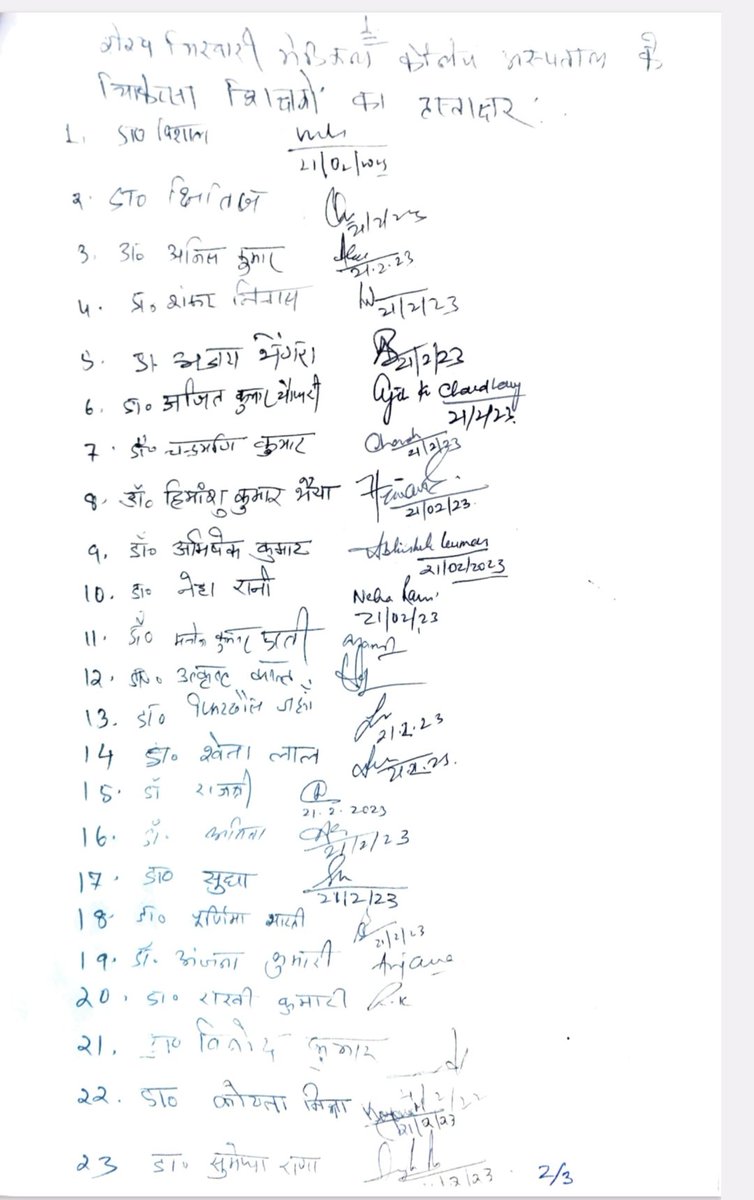 मेडिकल कॉलेज अस्पताल के
का हस्ताक्षर :
1. डा० विशाल
21/02/2023
2. डा० क्षितिज
21/2/23
3. डा० अनिल कुमार
21.2.23
4. डा० शंकर निवास
21/2/23
5. डा अजय भेंगरा
21/2/23
6. डा० अजित कुमार चौधरी Ajit K Chaudhary
21/2/23
7. डॉ० चन्द्रमणि कुमार
21/2/23
8. डॉ० हिमांशु कुमार भैया
21/02/23
9. डॉ० अभिषेक कुमार Abhishek Kumar
21/02/2023
10. डा० नेहा रानी Neha Rani
21/02/23
11. डॉ० मनोज कुमार
12. डा०
13. डॉ०
21.2.23
14 डा० श्वेता लाल
21.2.23.
15. डॉ राजश्री
21.2.2023
16. डॉ.
21/2/23
17. डा० सुधा
21/2/23
18. डा० पूर्णिमा भारती
21/2/23
19. डॉ. अंजना कुमारी Anjana
20. डा० राखी कुमारी R.K
21. डा० विनोद कुमार
22. डा० कोयला मिश्रा
21/2/23
23 डा० राणा
2/3